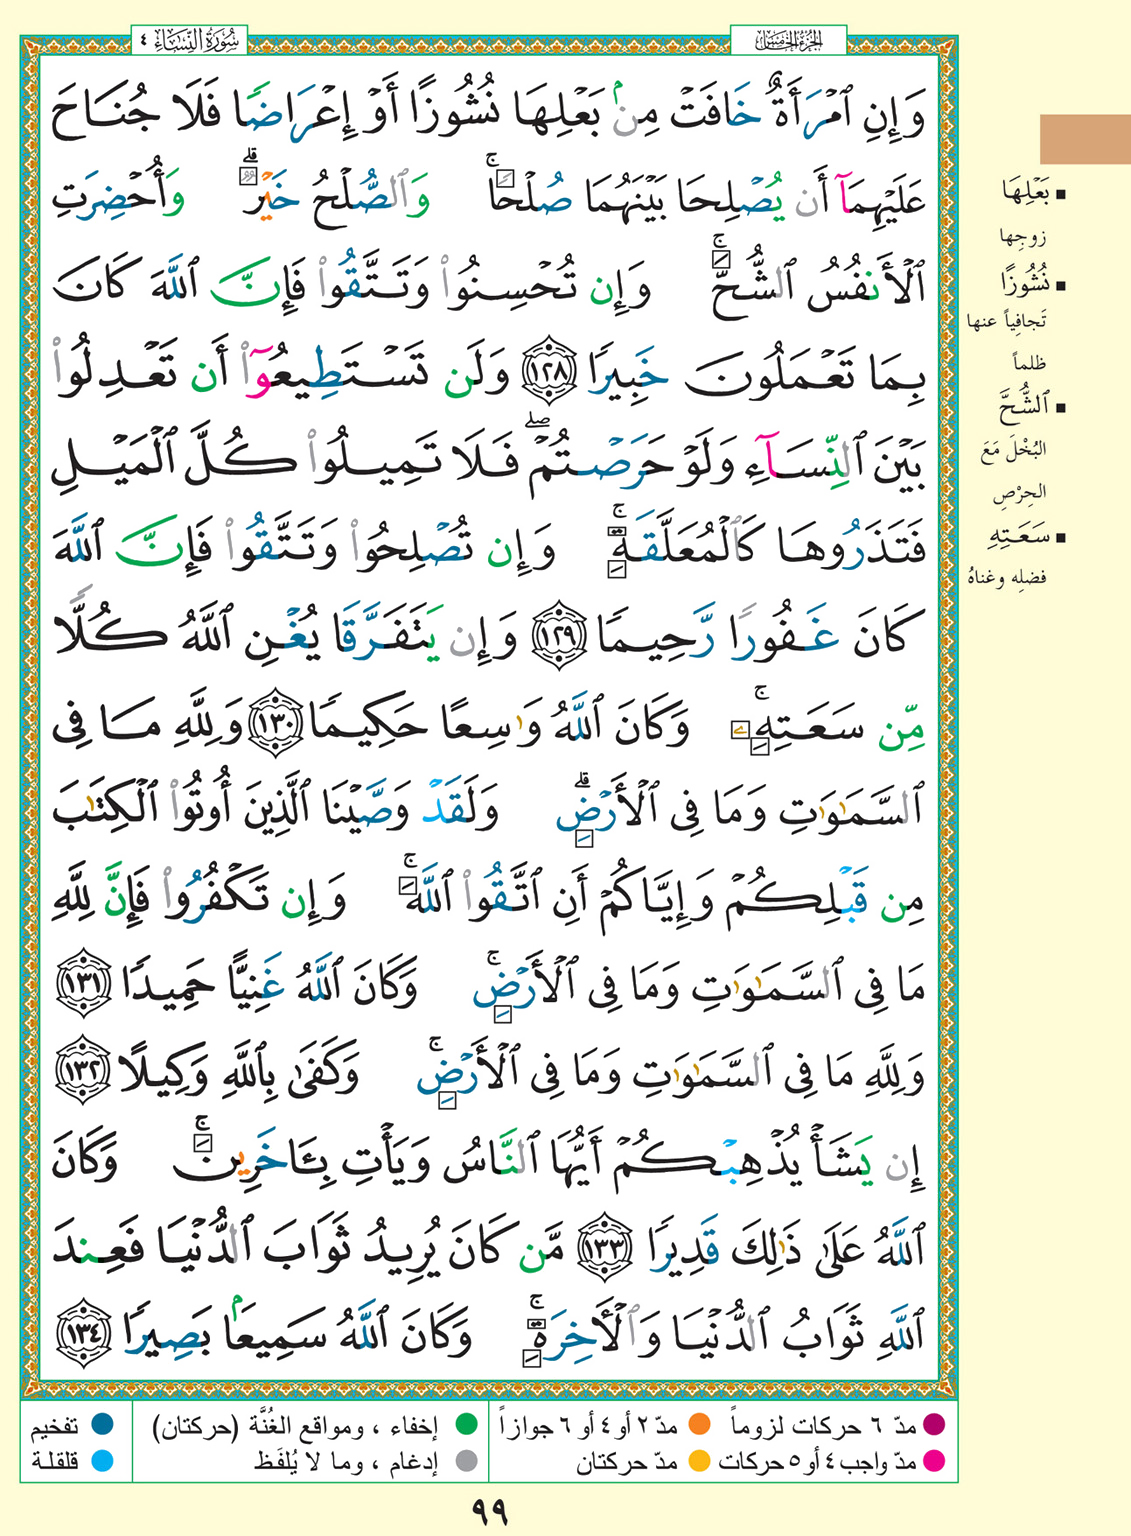 سُورَةُ النِّسَاءِ ٤
الجُزْءُ الخَامِسُ
وَإِنِ ٱمْرَأَةٌ خَافَتْ مِنۢ بَعْلِهَا نُشُوزًا أَوْ إِعْرَاضًا فَلَا جُنَاحَ
عَلَيْهِمَآ أَن يُصْلِحَا بَيْنَهُمَا صُلْحًا ۚ وَٱلصُّلْحُ خَيْرٌ ۗ وَأُحْضِرَتِ
ٱلْأَنفُسُ ٱلشُّحَّ ۚ وَإِن تُحْسِنُوا۟ وَتَتَّقُوا۟ فَإِنَّ ٱللَّهَ كَانَ
بِمَا تَعْمَلُونَ خَبِيرًا ١٢٨ وَلَن تَسْتَطِيعُوٓا۟ أَن تَعْدِلُوا۟
بَيْنَ ٱلنِّسَآءِ وَلَوْ حَرَصْتُمْ ۖ فَلَا تَمِيلُوا۟ كُلَّ ٱلْمَيْلِ
فَتَذَرُوهَا كَٱلْمُعَلَّقَةِ ۚ وَإِن تُصْلِحُوا۟ وَتَتَّقُوا۟ فَإِنَّ ٱللَّهَ
كَانَ غَفُورًا رَّحِيمًا ١٢٩ وَإِن يَتَفَرَّقَا يُغْنِ ٱللَّهُ كُلًّا
مِّن سَعَتِهِۦ ۚ وَكَانَ ٱللَّهُ وَٰسِعًا حَكِيمًا ١٣٠ وَلِلَّهِ مَا فِى
ٱلسَّمَٰوَٰتِ وَمَا فِى ٱلْأَرْضِ ۗ وَلَقَدْ وَصَّيْنَا ٱلَّذِينَ أُوتُوا۟ ٱلْكِتَٰبَ
مِن قَبْلِكُمْ وَإِيَّاكُمْ أَنِ ٱتَّقُوا۟ ٱللَّهَ ۚ وَإِن تَكْفُرُوا۟ فَإِنَّ لِلَّهِ
مَا فِى ٱلسَّمَٰوَٰتِ وَمَا فِى ٱلْأَرْضِ ۚ وَكَانَ ٱللَّهُ غَنِيًّا حَمِيدًا ١٣١
وَلِلَّهِ مَا فِى ٱلسَّمَٰوَٰتِ وَمَا فِى ٱلْأَرْضِ ۚ وَكَفَىٰ بِٱللَّهِ وَكِيلًا ١٣٢
إِن يَشَأْ يُذْهِبْكُمْ أَيُّهَا ٱلنَّاسُ وَيَأْتِ بِـَٔاخَرِينَ ۚ وَكَانَ
ٱللَّهُ عَلَىٰ ذَٰلِكَ قَدِيرًا ١٣٣ مَّن كَانَ يُرِيدُ ثَوَابَ ٱلدُّنْيَا فَعِندَ
ٱللَّهِ ثَوَابُ ٱلدُّنْيَا وَٱلْأَخِرَةِ ۚ وَكَانَ ٱللَّهُ سَمِيعًۢا بَصِيرًا ١٣٤
▪ بَعْلِهَا
زوجِها
▪ نُشُوزًا
تَجافِياً عنها
ظلماً
▪ ٱلشُّحَّ
البُخْلَ مَعَ
الحِرْصِ
▪ سَعَتِهِ
فضلِه وغناهُ
مدّ ٦ حركات لزوماً
مدّ ٢ أو ٤ أو ٦ جوازاً
إخفاء ، ومواقع الغُنَّة (حركتان)
تفخيم
مدّ واجب ٤ أو ٥ حركات
مدّ حركتان
إدغام ، وما لا يُلفَظ
قلقلة
٩٩